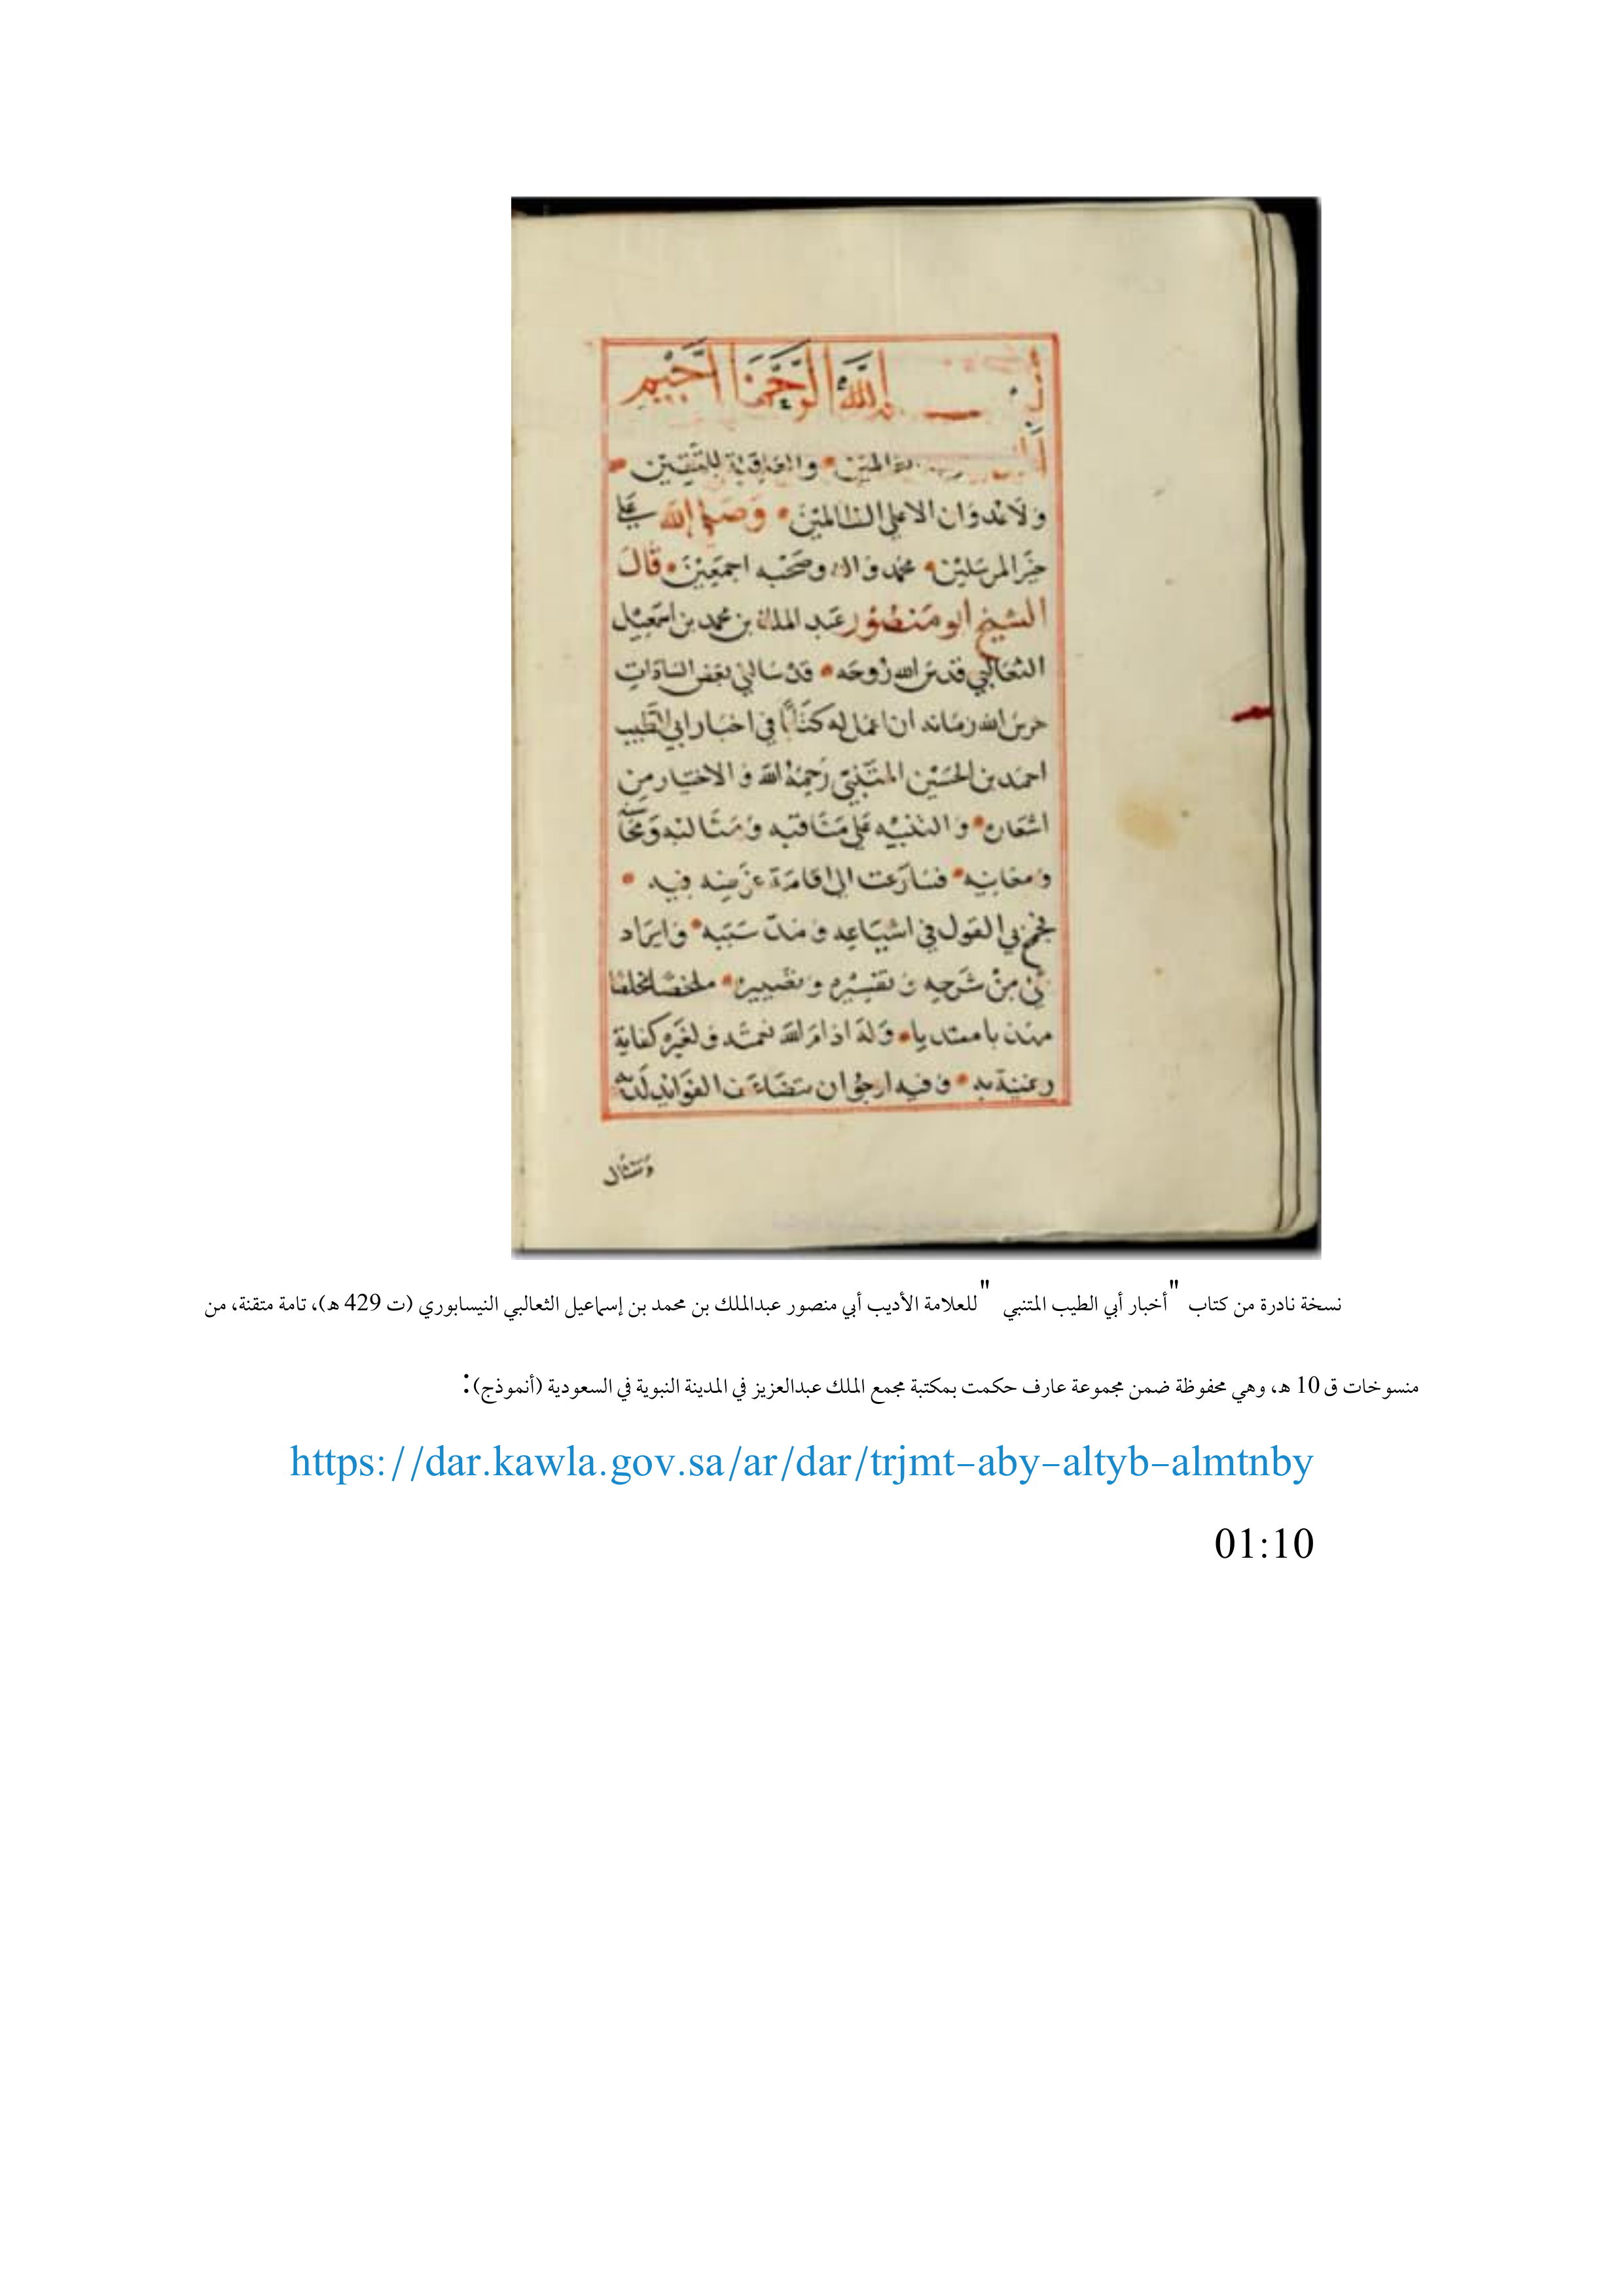 بسم الله الرحمن الرحيم
العالمين والعاقبة للمتقين
ولاعدوان الاعلى الظالمين وصلى الله على
خير المرسلين محمد واله وصحبه اجمعين قال
الشيخ ابو منصور عبد الملك بن محمد بن اسمعيل
الثعالبي قدس الله روحه قد سالني بعض السادات
حرس الله زمانه ان اعمل له كتابا في اخبار ابي الطيب
احمد بن الحسين المتنبي رحمه الله والاختيار من
اشعاره والتنبيه على مناقبه ومثالبه ومحاسنه
ومعايبه فسارعت الى اقامة غرضه فيه
بي القول في اشباعه سببه وايراد
من شرحه تفسيره ملخصا
وله اذا مر الله كفاية
به وفيه ارجو ان الفوائد لديه
نسخة نادرة من كتاب "أخبار أبي الطيب المتنبي " للعلامة الأديب أبي منصور عبدالملك بن محمد بن إسماعيل الثعالبي النيسابوري (ت 429 هـ)، تامة متقنة، من
منسوخات ق 10 هـ، وهي محفوظة ضمن مجموعة عارف حكمت بمكتبة مجمع الملك عبدالعزيز في المدينة النبوية في السعودية (أنموذج):
https://dar.kawla.gov.sa/ar/dar/trjmt-aby-altyb-almtnby
01:10